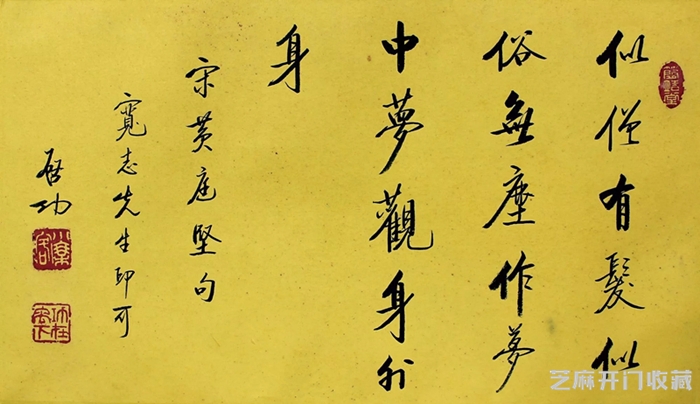 似僧有髮似
俗無塵作夢
中夢觀身外
身
宋黄庭堅句
寬志先生印可
啓功
芝麻开门收藏